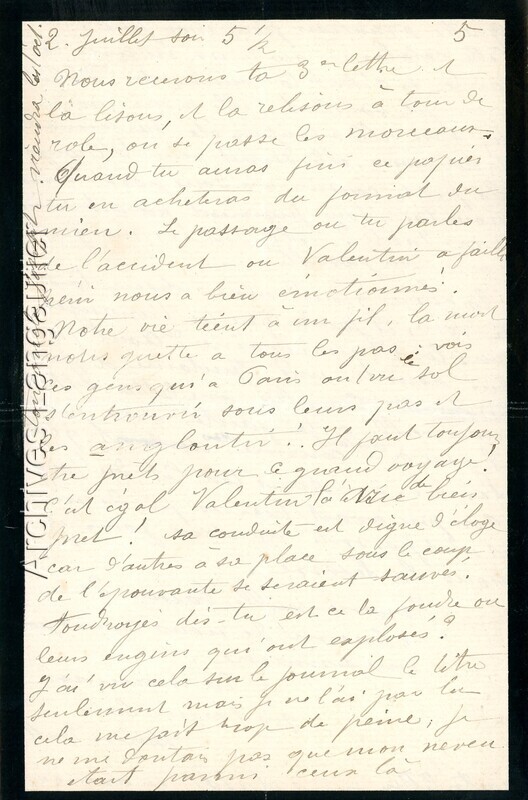 2. Juillet soir 5 ½
5
Nous recevons ta 3em lettre et
la lisons, et la relisons à tour de
role, on se passe les morceaux.
Quand tu auras fini ce papier
tu en acheteras du format du
mien. Le passage ou tu parles
de l'accident ou Valentin a failli
périr nous a bien émotionnés.
Notre vie tient à un fil, la mort
nous guette a tous les pas; vois
ces gens qui à Paris ont vu le sol
s'entrouvrir sous leurs pas et
les angloutir! Il faut toujours
être prêts pour ce grand voyage!
C'est égal Valentin l'a de bien
près! sa conduite est digne d'éloge
car d'autres à sa place sous le coup
de l'épouvante se seraient sauvés.
Foudroyés dis-tu est-ce la foudre ou
leurs engins qui ont explosés?
J'ai vu cela sur le journal le titre
seulement mais je ne l'ai pas lu
cela me fait trop de peine, je
ne me doutais pas que mon neveu
était parmi ceux là
viendra les
Archives-Langlounet